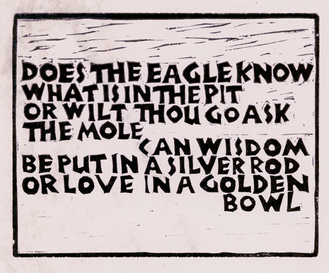 DOES THE EAGLE KNOW
WHAT IS IN THE PIT
OR WILT THOU GO ASK
THE MOLE
CAN WISDOM
BE PUT IN A SILVER ROD
OR LOVE IN A GOLDEN
BOWL